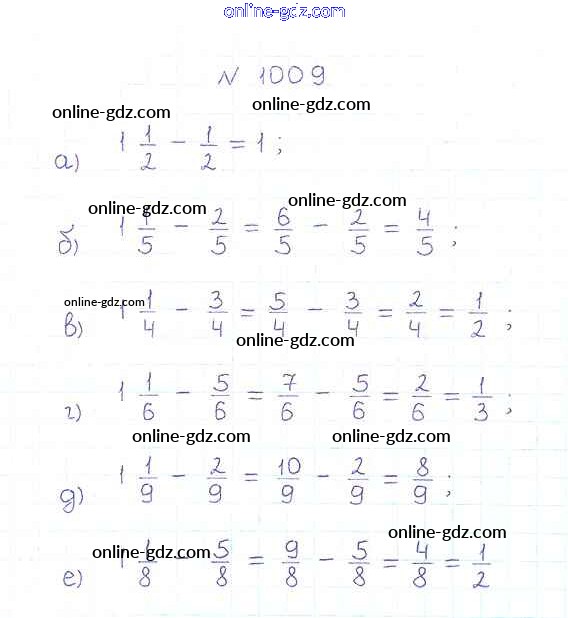 online-gdz.com
№ 1009
online-gdz.com
online-gdz.com
а) 1 1/2 - 1/2 = 1 ;
online-gdz.com
online-gdz.com
б) 1 1/5 - 2/5 = 6/5 - 2/5 = 4/5 ;
online-gdz.com
в) 1 1/4 - 3/4 = 5/4 - 3/4 = 2/4 = 1/2 ;
online-gdz.com
г) 1 1/6 - 5/6 = 7/6 - 5/6 = 2/6 = 1/3 ;
online-gdz.com
online-gdz.com
д) 1 1/9 - 2/9 = 10/9 - 2/9 = 8/9 ;
online-gdz.com
online-gdz.com
е) 1 1/8 - 5/8 = 9/8 - 5/8 = 4/8 = 1/2
online-gdz.com